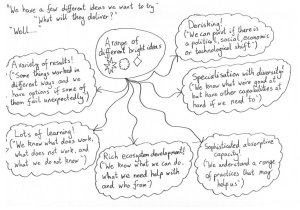 "We have a few different ideas we want to try"
"What will they deliver?"
"Well...
A range of
different bright ideas
Derisking!
("We can pivot if there is
a political, social, economic
or technological shift")
A variety of results!
("Some things worked in
different ways and we
have options if some of
them fail unexpectedly")
Specialisation with diversity!
("We know what we're good at
but have other capabilities at
hand if we need to")
Lots of learning!
("We know what does work,
what does not work, and
what we do not know")
Rich ecosystem development!
("We know what we can do,
what we need help with
and who from")
Sophisticated absorptive
capacity!
("We understand a range
of practices that may
help us")